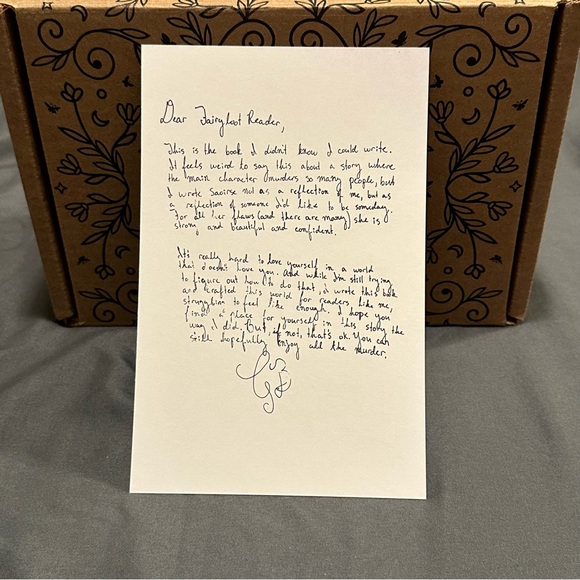 Dear Fairyloot Reader,
This is the book I didn't know I could write.
It feels weird to say this about a story where
the main character murders so many people, but
I wrote Saoirse not as a reflection of me, but as
a reflection of someone I'd like to be someday.
For all her flaws (and there are many) she is
strong and beautiful and confident.
It's really hard to love yourself in a world
that doesn't love you. And while I'm still trying
to figure out how to do that, I wrote this book
and crafted this world for readers like me,
struggling to feel like enough. I hope you
find a place for yourself in this story the
way I did. But, if not, that's ok. You can
still hopefully enjoy all the murder.